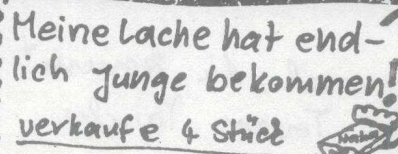 Meine Lache hat end-
lich Junge bekommen!
verkaufe 4 Stück